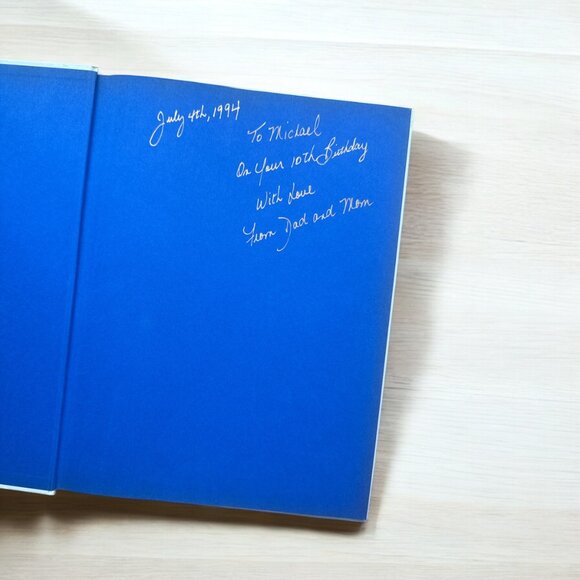 July 4th, 1994
To Michael
On Your 10th Birthday
With Love
From Dad and Mom